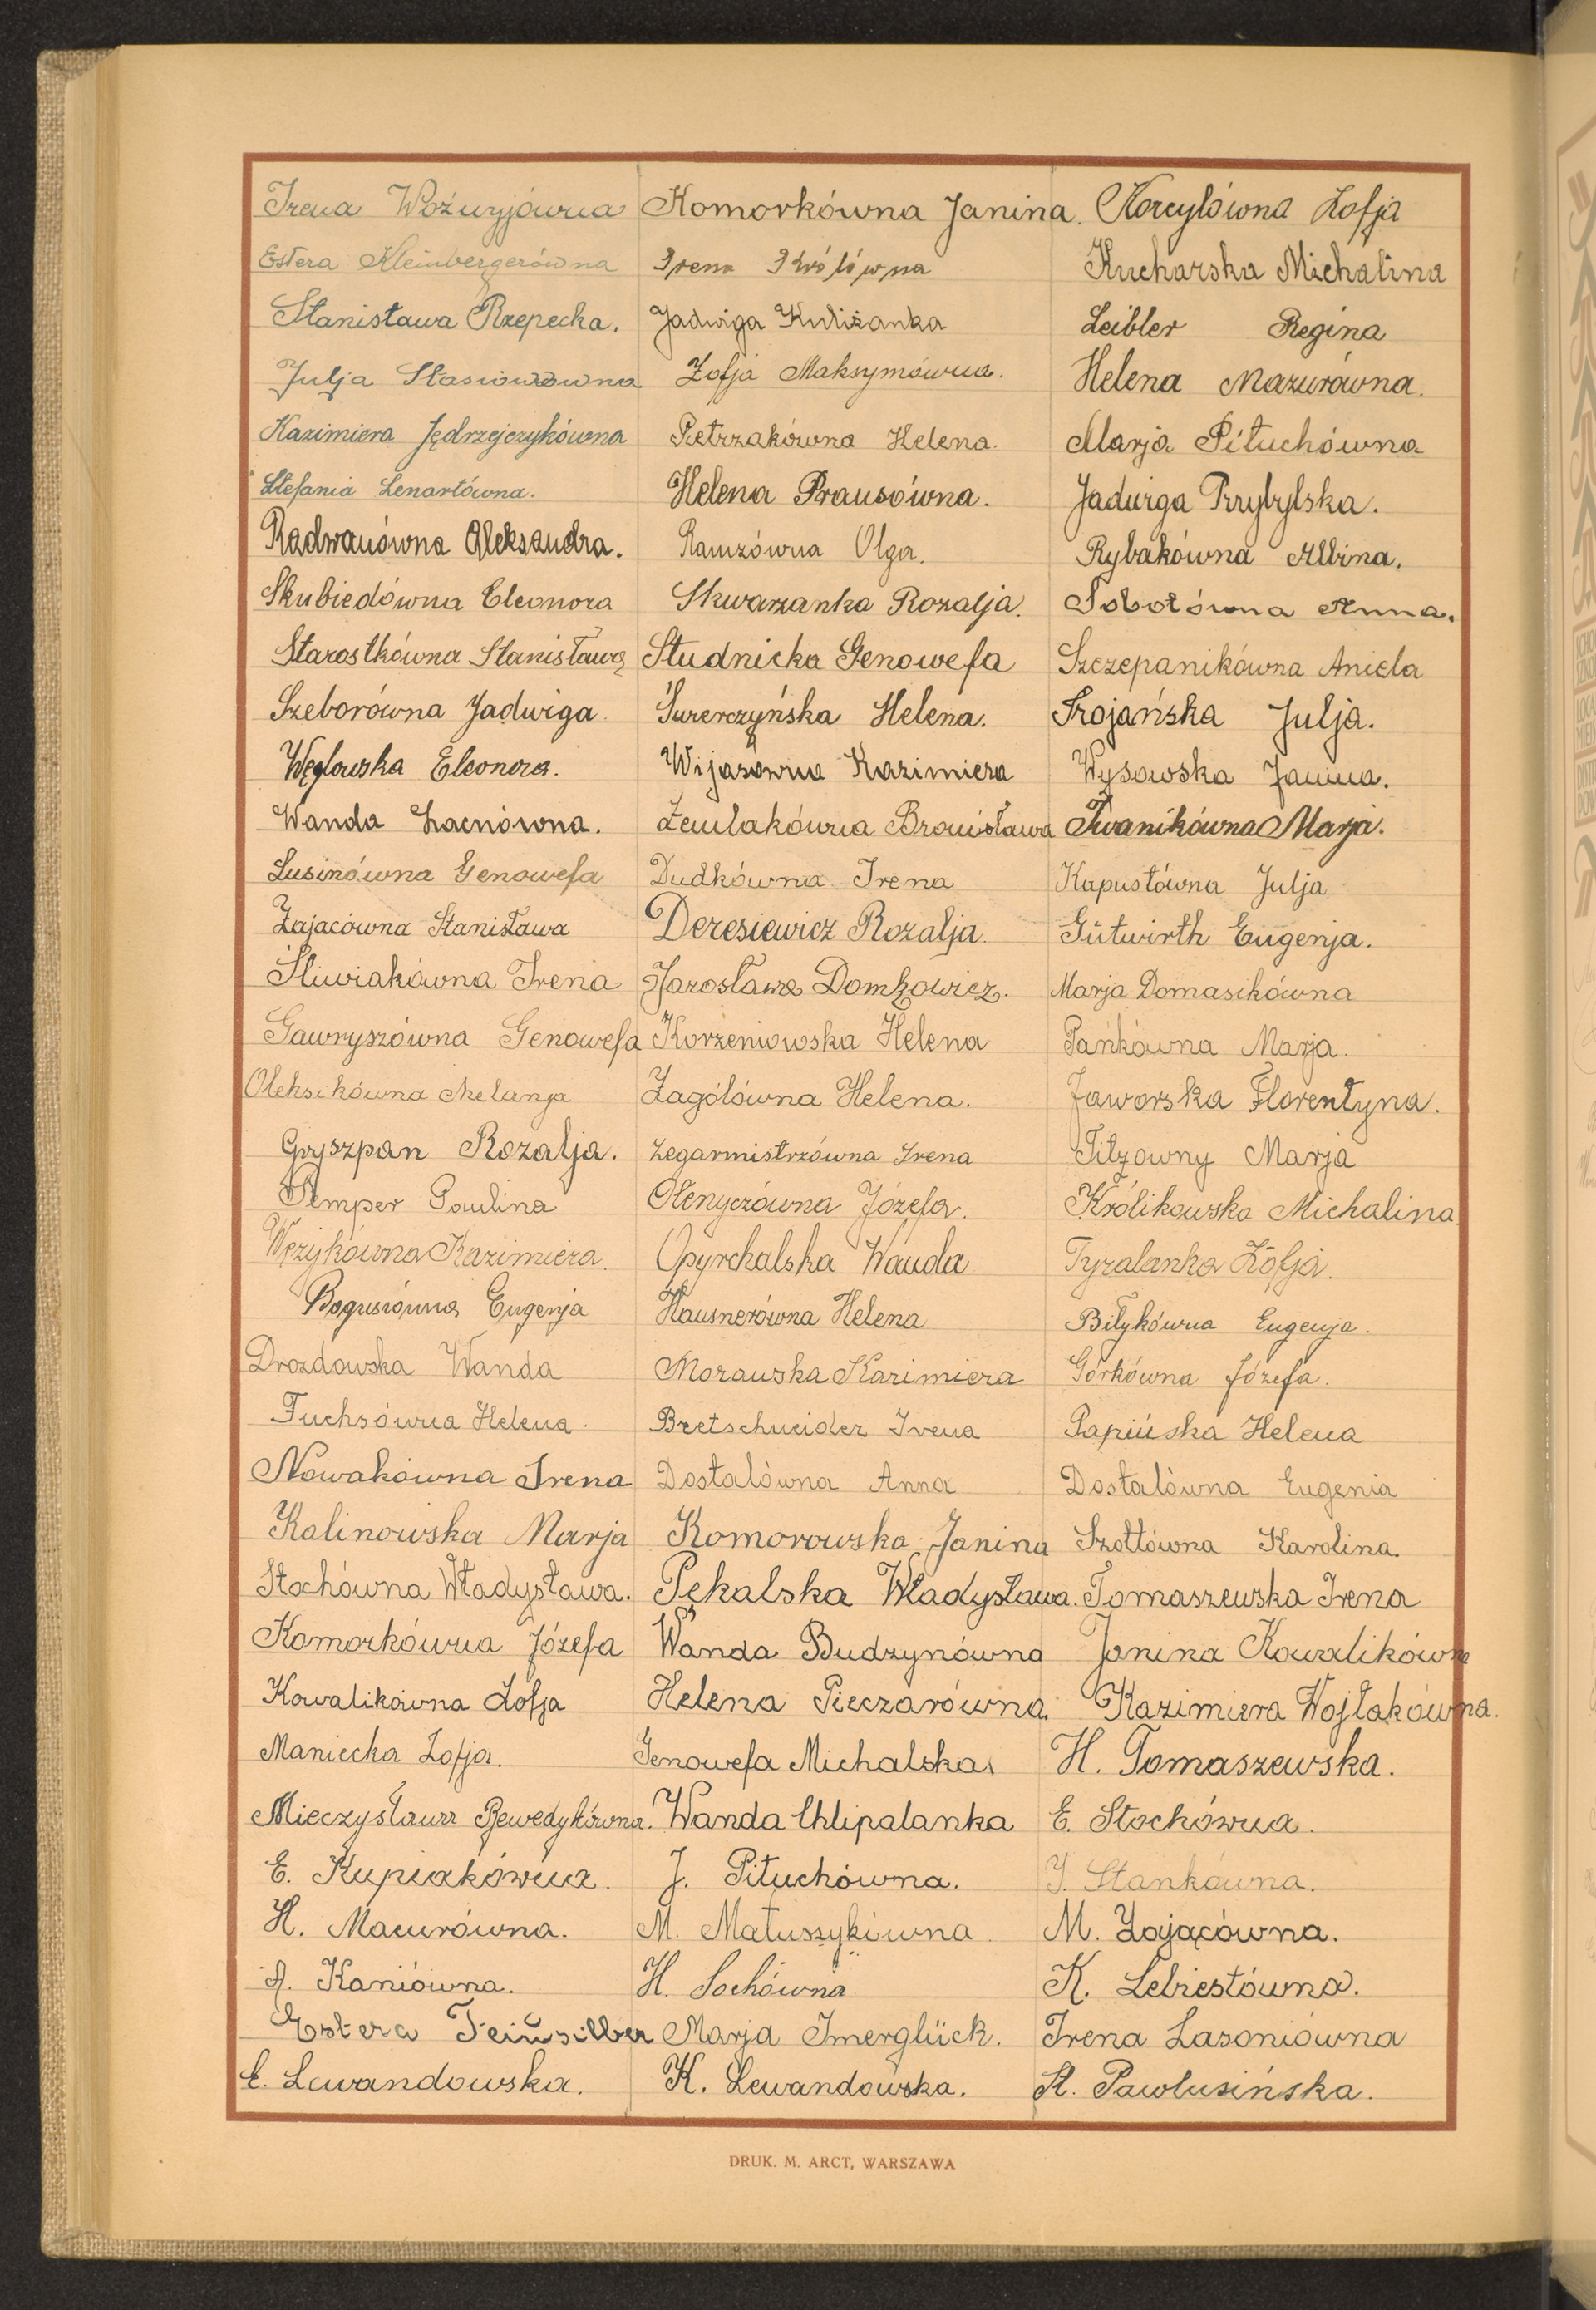 Irena Woźnyjówna Komorkówna Janina. Korcylówna Zofja
Estera Kleinbergerówna Irena Królówna Kucharska Michalina
Stanisława Rzepecka. Jadwiga Kuliżanka Leibler Regina
Julja Stasiowówna Zofja Maksymówna. Helena Mazurówna.
Kazimiera Jędrzejczykówna Pietrzakówna Helena. Marja Pituchówna
Stefania Lenartówna. Helena Prausówna. Jadwiga Przybylska.
Radwanówna Aleksandra. Ramzówna Olga. Rybakówna Albina.
Skubiedówna Eleonora Skwarzanka Rozalja. Sobotówna Anna.
Starostkówna Stanisława Studnicka Genowefa Szczepanikówna Aniela
Szeborówna Jadwiga. Helena. Trojańska Julja.
Węglowska Eleonora. Wijasówna Kazimiera Wysowska Janina.
Wanda Lacnówna. Żemlakówna Bronisława Iwanikówna Marja.
Lusinówna Genowefa Dudkówna Irena Kapustówna Julja
Zajacówna Stanisława Deresiewicz Rozalja. Gutwirth Eugenja.
Śliwiakówna Irena Jarosława Marja Domasikówna
Gawryszówna Genowefa Korzeniowska Helena Pańkówna Marja.
Oleksikówna Melanja Zagólówna Helena. Jaworska Florentyna.
Gryszpan Rozalja. Zegarmistrzówna Irena Marja
Semper Paulina Ołenyczówna Józefa. Królikowska Michalina
Wężykówna Kazimiera. Opyrchalska Wanda Tyralanka Zofja.
Bogusiówna Eugenja Hausnerówna Helena Biłykówna Eugenja.
Drozdowska Wanda Morawska Kazimiera Górkówna Józefa.
Fuchsówna Helena. Bretschneider Irena Papińska Helena
Nowakówna Irena Dostalówna Anna Dostalówna Eugenia
Kalinowska Marja Komorowska Janina Szottówna Karolina.
Stochówna Władysława. Pękalska Władysława. Tomaszewska Irena
Komorkówna Józefa Wanda Budzynówna Janina Kowalikówna
Kowalikówna Zofja Helena Pieczarówna. Kazimiera Wojtakówna.
Maniecka Zofja. Genowefa Michalska. H. Tomaszewska.
Mieczysława Wanda Chlipalanka E. Stochówna.
E. Kupiakówna. J. Pituchówna. J. Stankówna.
H. Macurówna. M. Matuszykówna. M. Zającówna.
A. Kaniówna. H. Sochówna K. Lebiestówna.
Estera Feinsilber Marja Imerglück. Irena Lasoniówna
E. Lewandowska. K. Lewandowska. St. Pawlusińska.
DRUK. M. ARCT, WARSZAWA